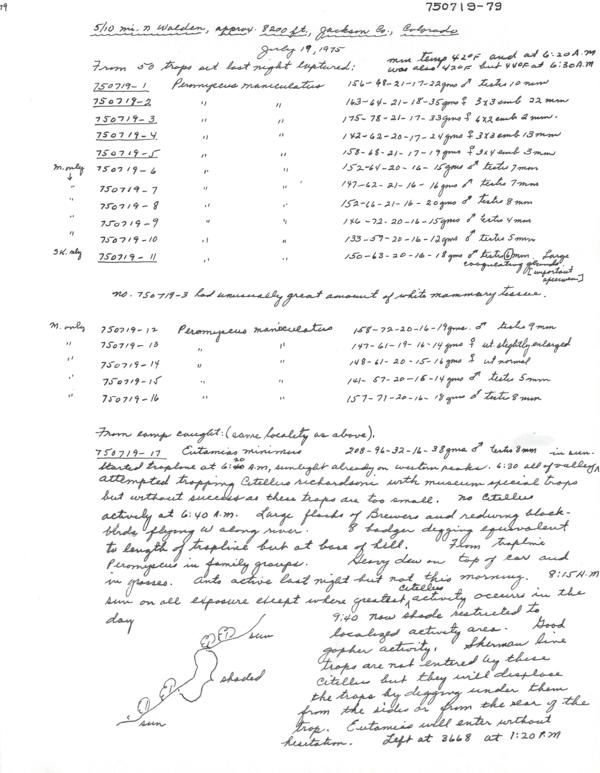 79
750719-79
5/10 mi. N Walden, approx. 8200 ft., Jackson Co., Colorado
July 19, 1975
min temp 42°F and at 6:20 A.M
was also 42°F but 44°F at 6:30 AM
From 50 traps set last night captured:
750719-1 Peromyscus maniculatus 156-48-21-17-22gms ♂ testis 10 mm
750719-2 " " 163-64-21-18-35gms ♀ 3x3 emb 22 mm
750719-3 " " 175-78-21-17-33gms ♀ 4x2 emb 2 mm.
750719-4 " " 142-62-20-17-24gms ♀ 3x3 emb 13 mm
750719-5 " " 158-68-21-17-19gms ♀ 3x4 emb 3mm
M. only 750719-6 " " 152-64-20-16-15gms ♂ testis 7mm
" 750719-7 " " 147-62-21-16-16gms ♂ testis 7mm
" 750719-8 " " 152-66-21-16-20gms ♂ testis 8mm
" 750719-9 " " 146-72-20-16-15gms ♂ testis 4mm
" 750719-10 " " 133-57-20-16-12gms ♂ testis 5mm
SK. only 750719-11 " " 150-63-20-16-18gms ♂ testis 6mm. Large
coagulating glands
[important specimen]
no. 750719-3 had unusually great amount of white mammary tissue.
M. only 750719-12 Peromyscus maniculatus 158-72-20-16-19gms. ♂ testis 9mm
" 750719-13 " " 147-61-19-16-14gms ♀ ut. slightly enlarged
" 750719-14 " " 148-61-20-15-16gms ♀ ut normal
" 750719-15 " " 141-57-20-16-14gms ♂ testis 5mm
" 750719-16 " " 157-71-20-16-18gms ♂ testis 8mm
From camp caught: (same locality as above).
750719-17 Eutamias minimus 208-96-32-16-38gms ♂ testis 8mm
Started trapline at 6:20 A.M, sunlight already on western peaks. 6:30 all of valley in sun.
Attempted trapping Citellus richardsoni with museum special traps
but without success as these traps are too small. No Citellus
activity at 6:40 A.M. Large flocks of Brewers and redwing black-
birds flying W along river. 8 badger digging equivalent
to length of trapline but at base of hill. From trapline
Peromyscus in family groups. Heavy dew on top of car and
in grasses. Ants active last night but not this morning. 8:15 A.M
sun on all exposure except where greatest Citellus activity occurs in the
day 9:40 now shade restricted to
localized activity area. Good
gopher activity. Sherman live
traps are not entered by these
Citellus but they will displace
the traps by digging under them
from the sides or from the rear of the
trap. Eutamias will enter without
hesitation. Left at 3668 at 1:20 P.M
sun
shaded
sun